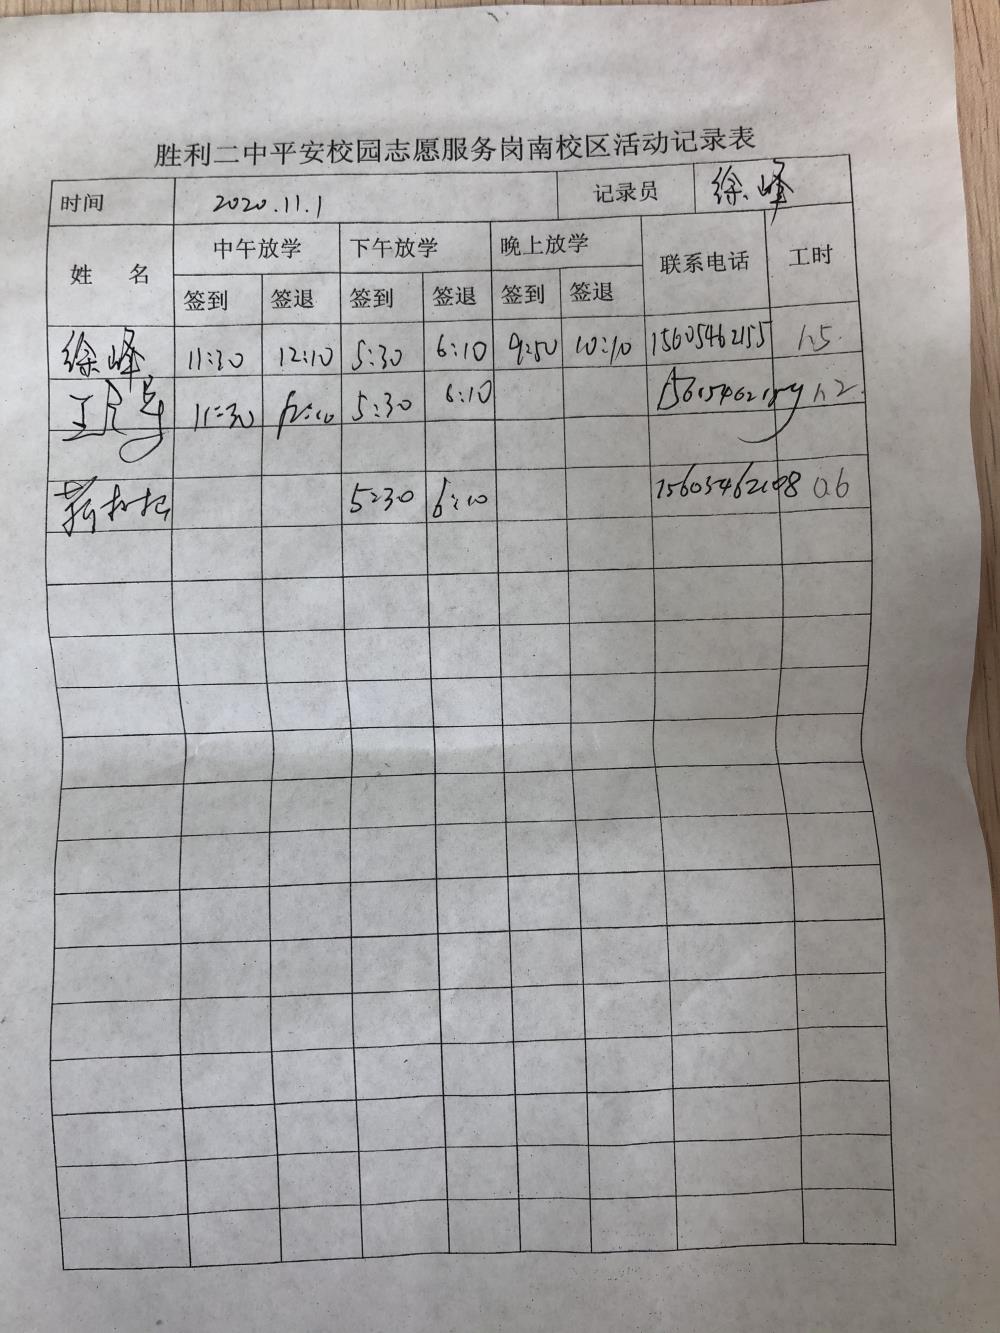 胜利二中平安校园志愿服务岗南校区活动记录表
时间 2020.11.1 记录员 徐峰
姓 名 中午放学 下午放学 晚上放学 联系电话 工时
签到 签退 签到 签退 签到 签退
徐峰 11:30 12:10 5:30 6:10 9:50 10:10 15605462155 1.5
王 11:30 12:10 5:30 6:10 1.2
5:30 6:10 0.6